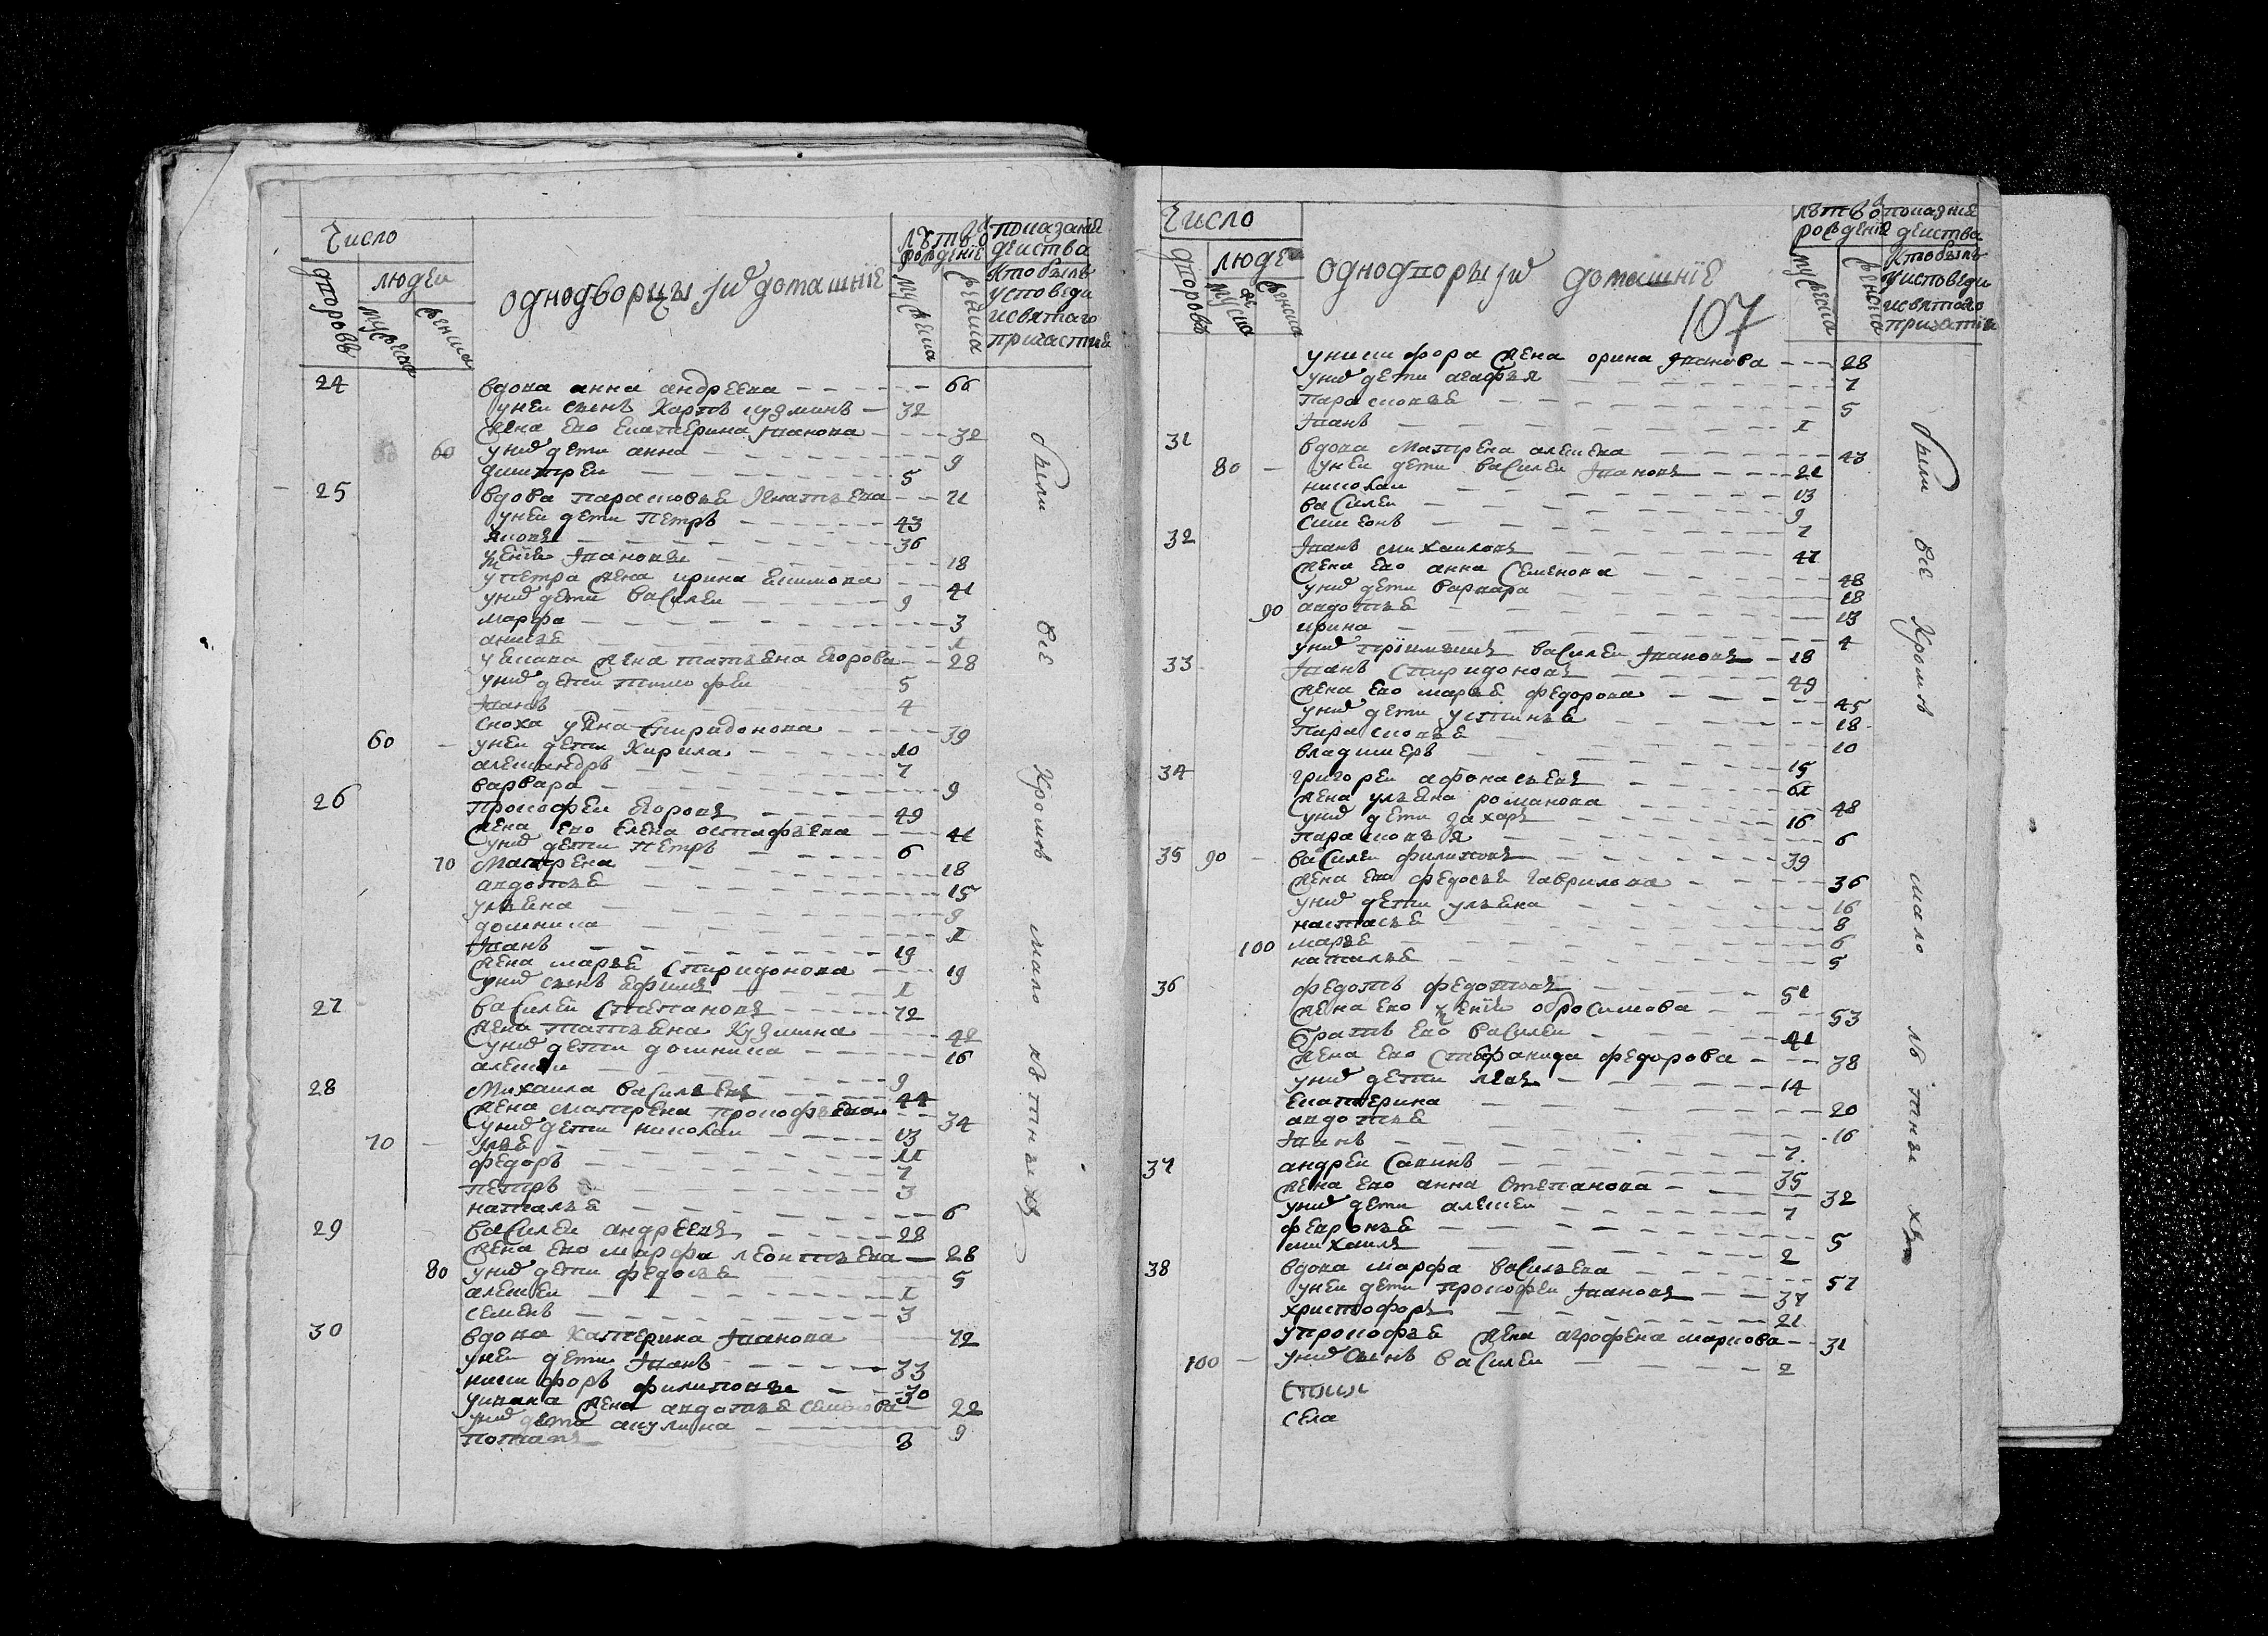 число
дворовъ
людеи
мужеска
женска
однодворцы и домашнїе
лѣтъ ѿ рожденїе
мужеска
женска
показанїе
деиства
кто былъ
у споведи
и святаго
причастия
24 вдова анна андреева 66
у неи сынъ карпъ кузминъ 32
жена ево екатерина іванова 32
60 у них дети анна 9
димтреи 5
25 вдова парасковѣя 71
у неи дети петръ 43
яковъ 36
іванова 18
у петра жена ирина екимова 41
у них дети василеи 9
марфа 3
анисѣя 1
у якава жена татьяна егорова 28
у них дети тимофеи 5
іванъ 4
сноха уляна спиридонова 39
60 у неи дети кирила 10
алеѯандръ 7
варвара 9
26 прокофеи егоровъ 49
жена ево елена остафьева 41
у них дети петръ 6
70 матрена 18
авдотья 15
ульяна 9
домника 1
іванъ 19
жена марья спиридонова 19
у них сынъ ефимъ 1
27 василеи степановъ 72
жена татьяна кузмина 42
у них дети домника 16
алеѯеи 9
28 михаила васильевъ 44
жена матрена прокофьева 34
у них дети николаи 13
70 илья 11
федоръ 7
петръ 3
наталья 6
29 василеи андреевъ 28
жена ево марфа леонтьева 28
80 у них дети федосья 5
алеѯеи 1
семенъ 3
30 вдова катерина іванова 72
у неи дети іванъ 33
никифоръ филиповы 30
у ивана жена авдотья семенова 22
у них дети акулина 9
потапъ 3
были все кроме малолѣтныхъ
число
дворовъ
людеи
мужеска
женска
однодворцы и домашнїе
107
лѣтъ ѿ рожденїе
мужеска
женска
показнїе
деиства
кто былъ
у исповеди
и святаго
причатия
у никифора жена орина іванова 28
у них дети агафья 7
парасковья 5
іванъ 1
31 вдова матрена алеѯеева 43
80 у неи дети василеи івановъ 21
николаи 13
василеи 9
симеонъ 7
32 іванъ михаиловъ 47
жена ево анна семенова 48
у них дети варвара 18
90 авдотья 13
ирина 4
у них приимышъ василеи івановъ 18
33 іванъ спиридоновъ 49
жена ево марья федорова 45
у них дети устинья 18
парасковья 10
владимеръ 15
34 григореи афонасьевъ 61
жена ульяна романова 48
у них дети захаръ 16
парасковья 6
35 90 василеи филиповъ 39
жена ево федосья гаврилова 36
у них дети ульяна 16
настасья 8
100 марья 6
наталья 5
36 федотъ федотовъ 51
жена ево ѯенїя обросимова 53
братъ ево василеи 41
жена ево степанида федорова 38
у них дети левъ 14
екатерина 20
авдотья 16
іванъ 7
37 андреи савинъ 35
жена ево анна степанова 32
у них дети алеѯеи 7
февронья 5
михаилъ 2
38 вдова марфа васильева 57
у неи дети прокофеи івановъ 37
христофоръ 21
у прокофья жена агрофена маркова 31
100 у них сынъ василеи 2
села
были все кроме малолѣтныхъ